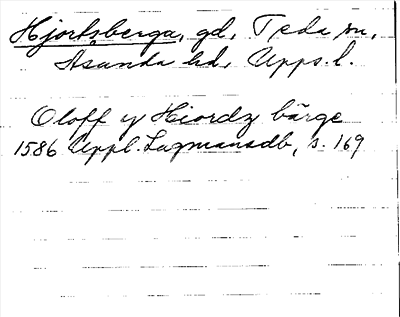 Hjortsberga, gd, Teda sn,
Åsunda hd, Upps. l.
Oloff y Hiordz bärge
1586 Uppl. Lagmansdb, s. 169